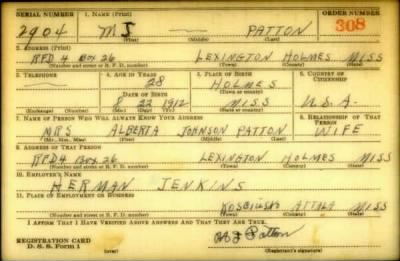 SERIAL NUMBER 1. NAME (Print) ORDER NUMBER
2904 M J — PATTON 308
(First) (Middle) (Last)
2. ADDRESS (Print)
RFD 4 BOX 26 LEXINGTON HOLMES MISS
(Number and street or R. F. D. number) (Town) (County) (State)
3. TELEPHONE 4. AGE IN YEARS 5. PLACE OF BIRTH 6. COUNTRY OF CITIZENSHIP
— 28 HOLMES
DATE OF BIRTH (Town or county)
8 22 1912 MISS U.S.A.
(Exchange) (Number) (Mo.) (Day) (Yr.) (State or country)
7. NAME OF PERSON WHO WILL ALWAYS KNOW YOUR ADDRESS 8. RELATIONSHIP OF THAT PERSON
MRS ALBERTA JOHNSON PATTON WIFE
(Mr., Mrs., Miss) (First) (Middle) (Last)
9. ADDRESS OF THAT PERSON
RFD4 BOX 26 LEXINGTON HOLMES MISS
(Number and street or R. F. D. number) (Town) (County) (State)
10. EMPLOYER'S NAME
HERMAN JENKINS
11. PLACE OF EMPLOYMENT OR BUSINESS
KOSCIUSKO ATTALA MISS
(Number and street or R. F. D. number) (Town) (County) (State)
I AFFIRM THAT I HAVE VERIFIED ABOVE ANSWERS AND THAT THEY ARE TRUE.
REGISTRATION CARD
D. S. S. Form 1
M J Patton
(Registrant's signature)